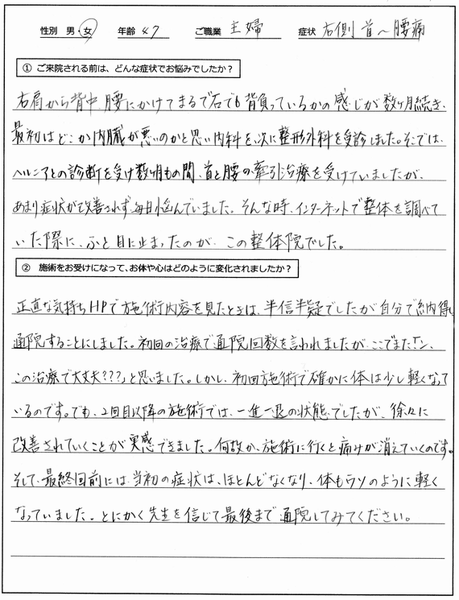 性別 男・女 年齢 47 ご職業 主婦 症状 右側 首～腰痛
① ご来院される前は、どんな症状でお悩みでしたか？
右肩から背中 腰にかけてまるで石でも背負っているかの感じが数ヶ月続き、
最初はどこか内臓が悪いのかと思い内科を、次に整形外科を受診しました。そこでは、
ヘルニアとの診断を受け数ヶ月もの間、首と腰の牽引治療を受けていましたが、
あまり症状が改善されず、毎日悩んでいました。そんな時、インターネットで整体を調べて
いた際に、ふと目に止まったのが、この整体院でした。
② 施術をお受けになって、お体や心はどのように変化されましたか？
正直な気持ちHPで施術内容を見たときは、半信半疑でしたが自分で納得し
通院することにしました。初回の治療で通院回数を言われましたが、ここでまた!ン、
この治療で大丈夫???と思いました。しかし、初回施術で確かに体は少し軽くなって
いるのです。でも、2回目以降の施術では、一進一退の状態でしたが、徐々に
改善されていくことが実感できました。何故か、施術に行くと痛けが消えていくのです。
そして、最終回前には、当初の症状は、ほとんどなくなり、体もウソのように軽く
なっていました。とにかく先生を信じて最後まで通院してみてください。